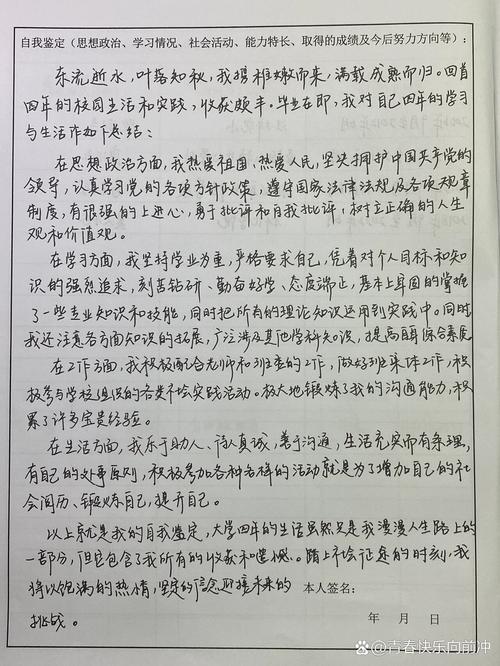 自我鉴定（思想政治、学习情况、社会活动、能力特长、取得的成绩及今后努力方向等）：
东流逝水，叶落知秋，我携稚嫩而来，满载成熟而归。回首
四年的校园生活和实践，收获颇丰。毕业在即，我对自己四年的学习
与生活作如下总结：
在思想政治方面，我热爱祖国，热爱人民，坚决拥护中国共产党的
领导，认真学习党的各项方针政策，遵守国家法律法规及各项规章
制度，有很强的上进心，勇于批评和自我批评，树立正确的人生
观和价值观。
在学习方面，我坚持学业为重，严格要求自己，凭着对个人目标和知
识的强烈追求，刻苦钻研、勤奋好学、态度端正，基本上牢固的掌握
了一些专业知识和技能，同时把所有的理论知识运用到实践中。同时
我还注意各方面知识的拓展，广泛涉及其他学科知识，提高自身综合素质
在工作方面，我积极配合老师和班委的工作，做好班集体工作，积
极参与学校组织的各类社会实践活动。极大地锻炼了我的沟通能力，积
累了许多宝贵经验。
在生活方面，我乐于助人、待人真诚，善于沟通，生活充实而有条理，
有自己的处事原则，积极参加各种各样的活动就是为了增加自己的社
会阅历、锻炼自己，提升自己。
以上就是我的自我鉴定，大学四年的生活虽然只是我漫漫人生路上的
一部分，但它包含了我所有的收获和遗憾。踏上社会征途的时刻，我
将以饱满的热情，坚定的信念迎接未来的 本人签名：
挑战。 年 月 日
@青春快乐向前冲